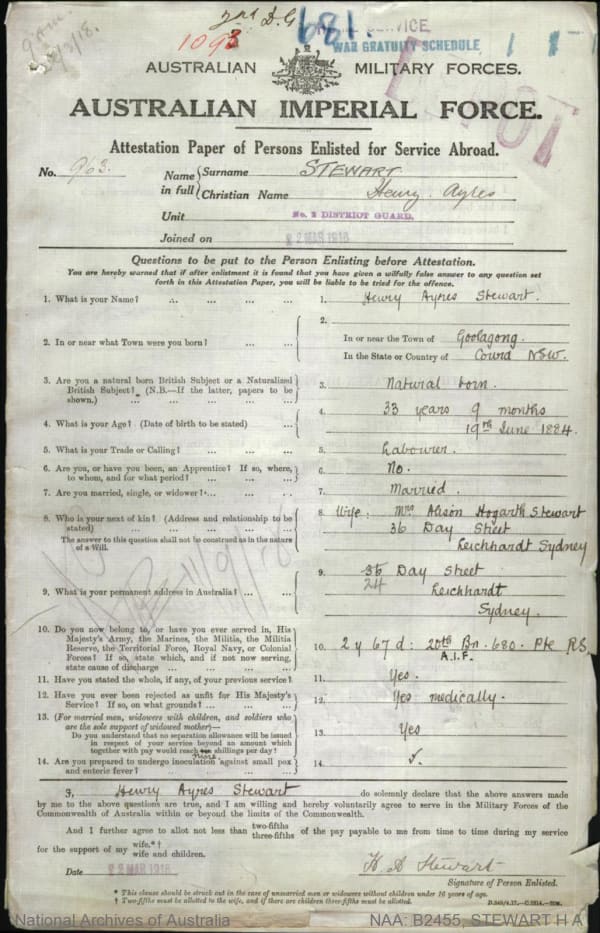 2nd D.G
681.
SERVICE
WAR GRATUITY SCHEDULE
1093
AUSTRALIAN MILITARY FORCES.
AUSTRALIAN IMPERIAL FORCE.
Attestation Paper of Persons Enlisted for Service Abroad.
No. 963. Name in full Surname STEWART
Christian Name Henry. Ayles
Unit No. 2 DISTRICT GUARD.
Joined on 22 MAR 1918
Questions to be put to the Person Enlisting before Attestation.
You are hereby warned that if after enlistment it is found that you have given a wilfully false answer to any question set
forth in this Attestation Paper, you will be liable to be tried for the offence.
1. What is your Name? ... ... ... ... 1. Henry Ayres Stewart.
2. In or near what Town were you born? ... ... 2. In or near the Town of Goolagong.
In the State or Country of Cowra NSW.
3. Are you a natural born British Subject or a Naturalized
British Subject? (N.B.—If the latter, papers to be
shown.) ... ... ... ... ... 3. Natural born.
4. What is your Age? (Date of birth to be stated) ... 4. 33 years 9 months
19th June 1884.
5. What is your Trade or Calling? ... ... ... 5. Labourer.
6. Are you, or have you been, an Apprentice? If so, where,
to whom, and for what period? ... ... ... 6. No.
7. Are you married, single, or widower? ... ... 7. Married.
8. Who is your next of kin? (Address and relationship to be
stated) ... ... ... ... ... 8. Wife: Mrs Alison Hogarth Stewart
The answer to this question shall not be construed as in the nature
of a Will. 36 Day Street
Leichhardt Sydney
9. What is your permanent address in Australia? ... ... 9. 36 Day Street
24 Leichhardt
Sydney.
10. Do you now belong to, or have you ever served in, His
Majesty's Army, the Marines, the Militia, the Militia
Reserve, the Territorial Force, Royal Navy, or Colonial
Forces? If so, state which, and if not now serving,
state cause of discharge ... ... ... ... 10. 2 y 67 d: 20th Bn. 680. Pte R.S.
A.I.F.
11. Have you stated the whole, if any, of your previous service? 11. Yes.
12. Have you ever been rejected as unfit for His Majesty's
Service? If so, on what grounds? ... ... ... 12. Yes medically.
13. (For married men, widowers with children, and soldiers who
are the sole support of widowed mother)—
Do you understand that no separation allowance will be issued
in respect of your service beyond an amount which
together with pay would reach ten shillings per day? 13. Yes
nine
14. Are you prepared to undergo inoculation against small pox
and enteric fever? ... ... ... ... 14.
I, Henry Ayres Stewart do solemnly declare that the above answers made
by me to the above questions are true, and I am willing and hereby voluntarily agree to serve in the Military Forces of the
Commonwealth of Australia within or beyond the limits of the Commonwealth.
And I further agree to allot not less than two-fifths three-fifths of the pay payable to me from time to time during my service
for the support of my wife.*†
wife and children.
Date 22 MAR 1918 H A Stewart
Signature of Person Enlisted.
* This clause should be struck out in the case of unmarried men or widowers without children under 16 years of age.
† Two-fifths must be allotted to the wife, and if there are children three-fifths must be allotted.
National Archives of Australia NAA: B2455, STEWART H A